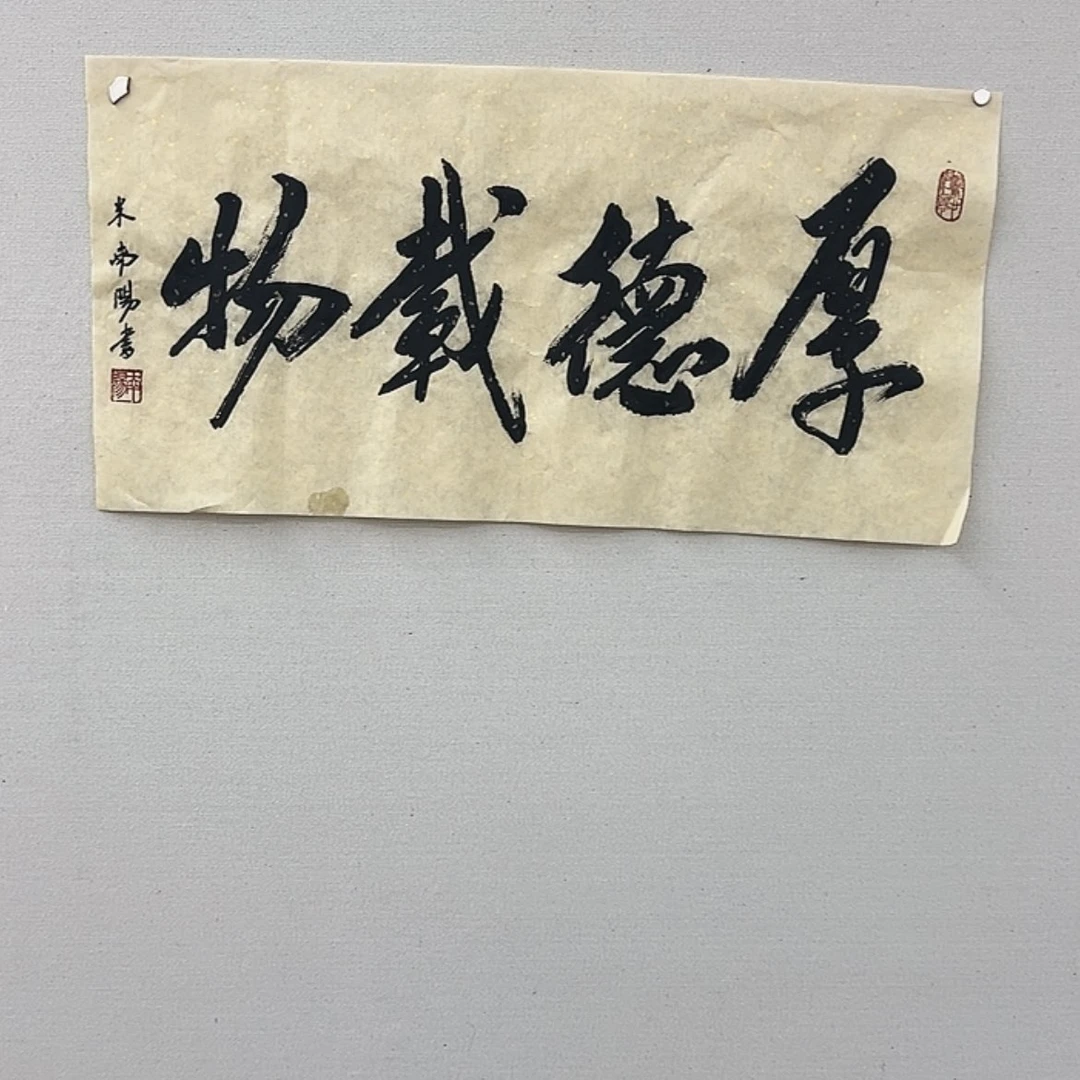 厚德載物
米南陽書